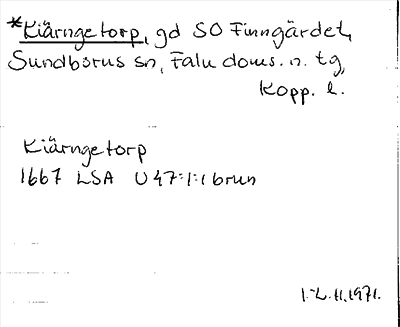 *Kiärngetorp, gd SO Finngärdet,
Sundborns sn, Falu doms. n. tg,
Kopp. l.
Kiärngetorp
1667 LSA U47:1:1 brun
1.-2.11.1971.